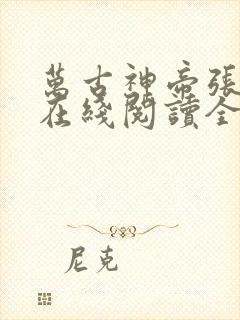 萬古神帝張
在綫閱讀全
尼克